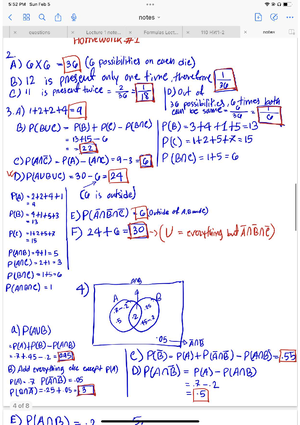 5:52 PM Sun Feb 5
notes
Homework #1
2.
A) 6×6 = 36 (6 possibilities on each die)
B) 12 is present only one time, therefore 1/36
C) 11 is present twice = 2/36 = 1/18
D) Out of 36 possibilities, 6 times both can be same = 6/36 = 1/6
3. A) 1+2+2+4 = 9
B) P(BUC) = P(B) + P(C) - P(B∩C)
= 13+15-6
= 22
P(B) = 3+4+1+5 = 13
P(C) = 1+2+5+7 = 15
P(B∩C) = 1+5 = 6
C) P(A∩C̅) = P(A) - (A∩C) = 9-3 = 6
D) P(AUBUC) = 30-6 = 24
(6 is outside)
P(A) = 2+2+4+1
= 9
P(B) = 4+1+5+3
= 13
P(C) = 1+2+5+7
= 15
P(A∩B) = 4+1 = 5
P(A∩C) = 2+1 = 3
P(B∩C) = 1+5 = 6
P(A∩B∩C) = 1
E) P(A̅∩B̅∩C̅) = 6 (Outside of A, B and C)
F) 24+6 = 30 → (U = everything but A̅∩B̅∩C̅)
4)
A
B
.7-.2
.5
.2
.45-.2
.05
a) P(AUB)
= P(A) + P(B) - P(A∩B)
= .7+.45-.2 = .95
B) Add everything else except P(A)
P(A) = .7 P(A̅∩B̅) = .05
P(B∩A̅) = .25 + .05 = .3
C) P(B̅) = P(A) + P(A̅∩B̅) - P(A∩B) = .55
D) P(A∩B̅) = P(A) - P(A∩B)
= .7-.2
= .5
4 of 8
E) P(A∩B) = .2